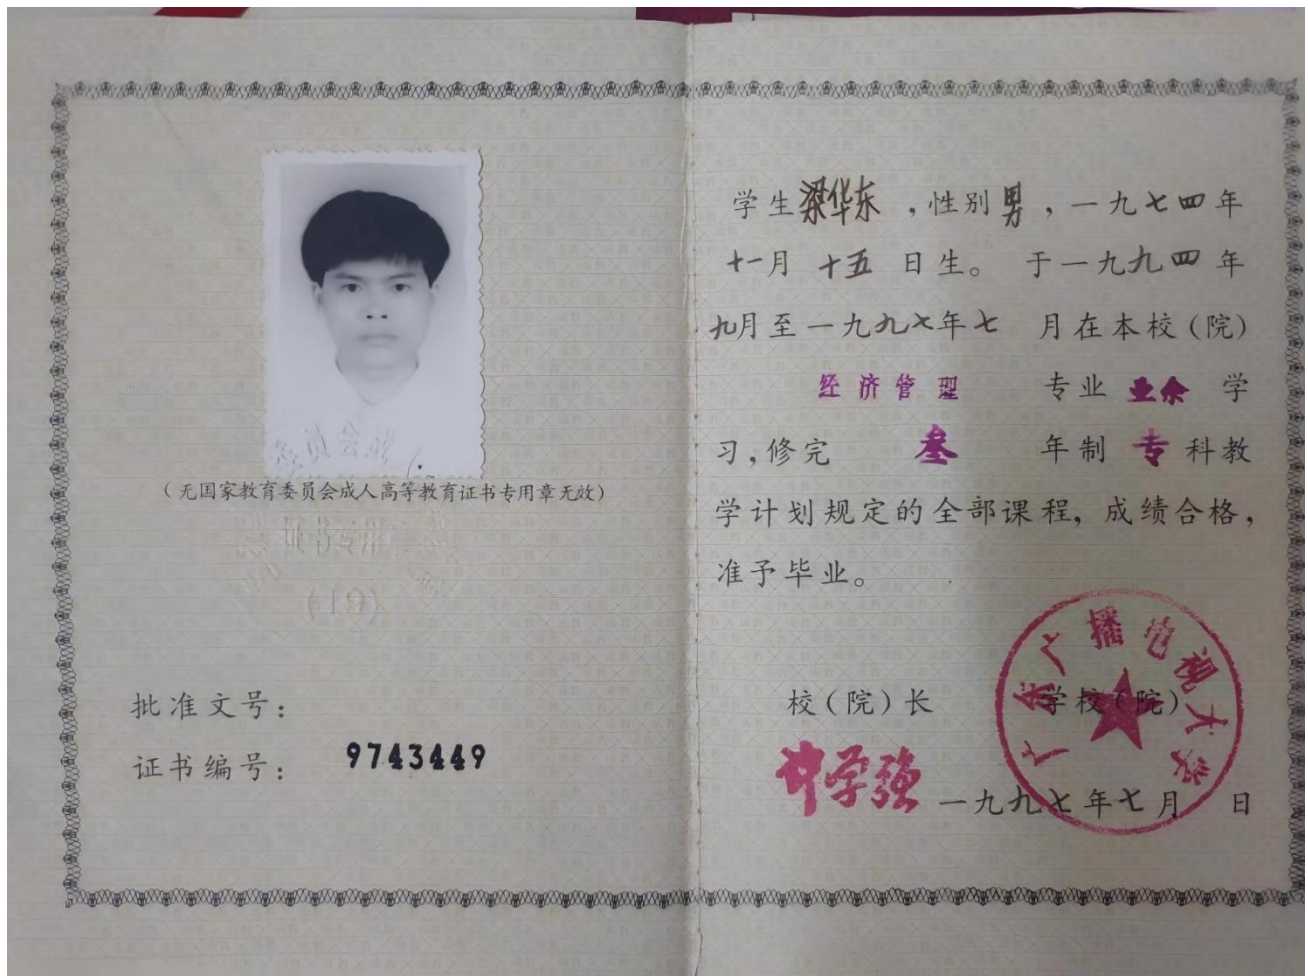 （无国家教育委员会成人高等教育证书专用章无效）
批准文号：
证书编号： 9743449
学生梁华东，性别男，一九七四年
十一月十五日生。于一九九四年
九月至一九九七年七月在本校（院）
经济管理 专业业余学
习，修完 叁 年制专科教
学计划规定的全部课程，成绩合格，
准予毕业。
校（院）长 学校（院）
许学强
广东广播电视大学
一九九七年七月 日